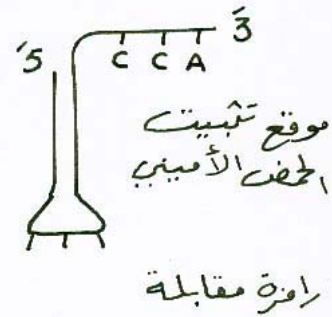 3́
5́
C C A
موقع تثبيت
الحمض الأميني
رامزة مقابلة